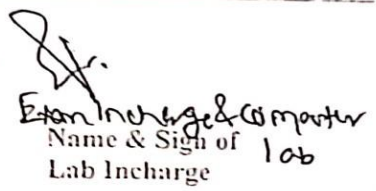 Exam Incharge & Computer
lab
Name & Sign of
Lab Incharge